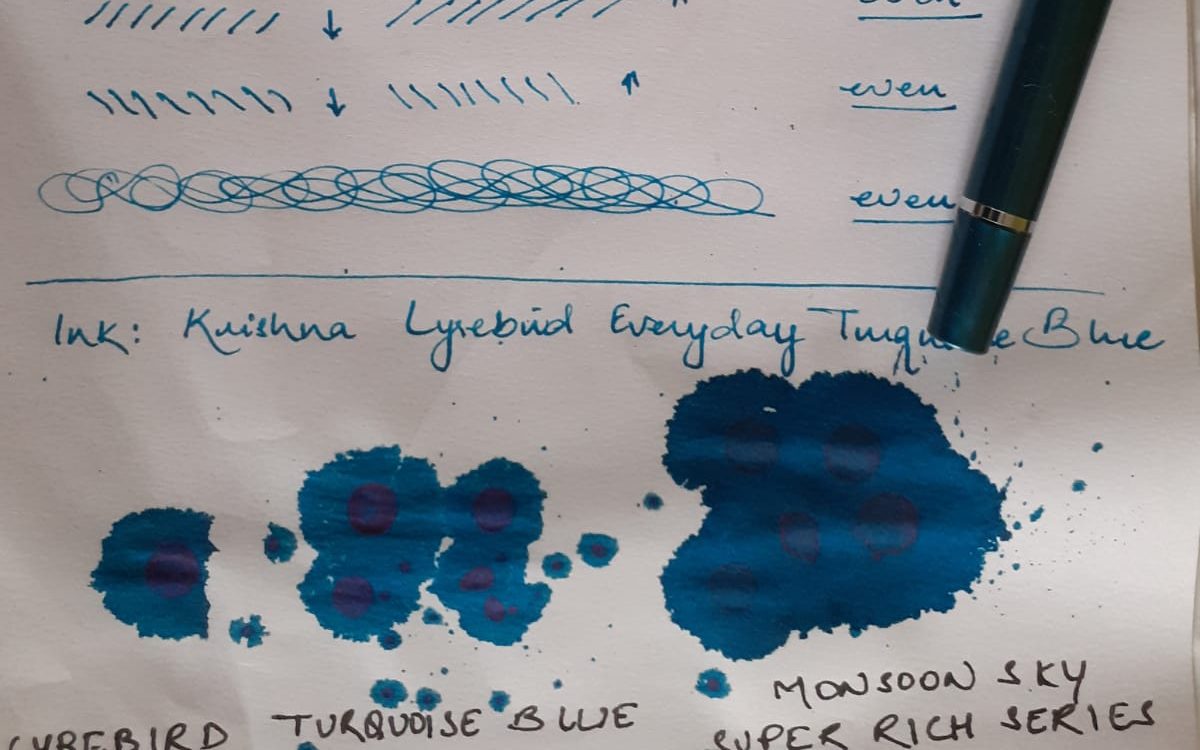 even
even
even
Ink: Krishna Lyrebird Everyday Turquoise Blue
LYREBIRD TURQUOISE BLUE
MONSOON SKY
SUPER RICH SERIES